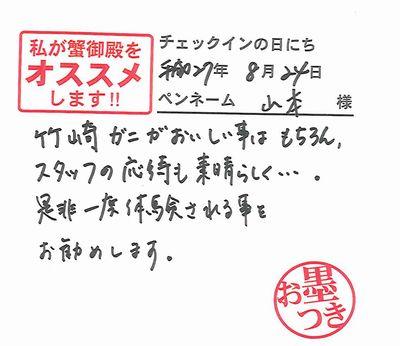 私が蟹御殿を
オススメ
します!!
チェックインの日にち
平成27年 8月24日
ペンネーム 山本 様
竹崎ガニがおいしい事はもちろん、
スタッフの応待も素晴らしく…。
是非一度体験される事を
お勧めします。
お墨
つき